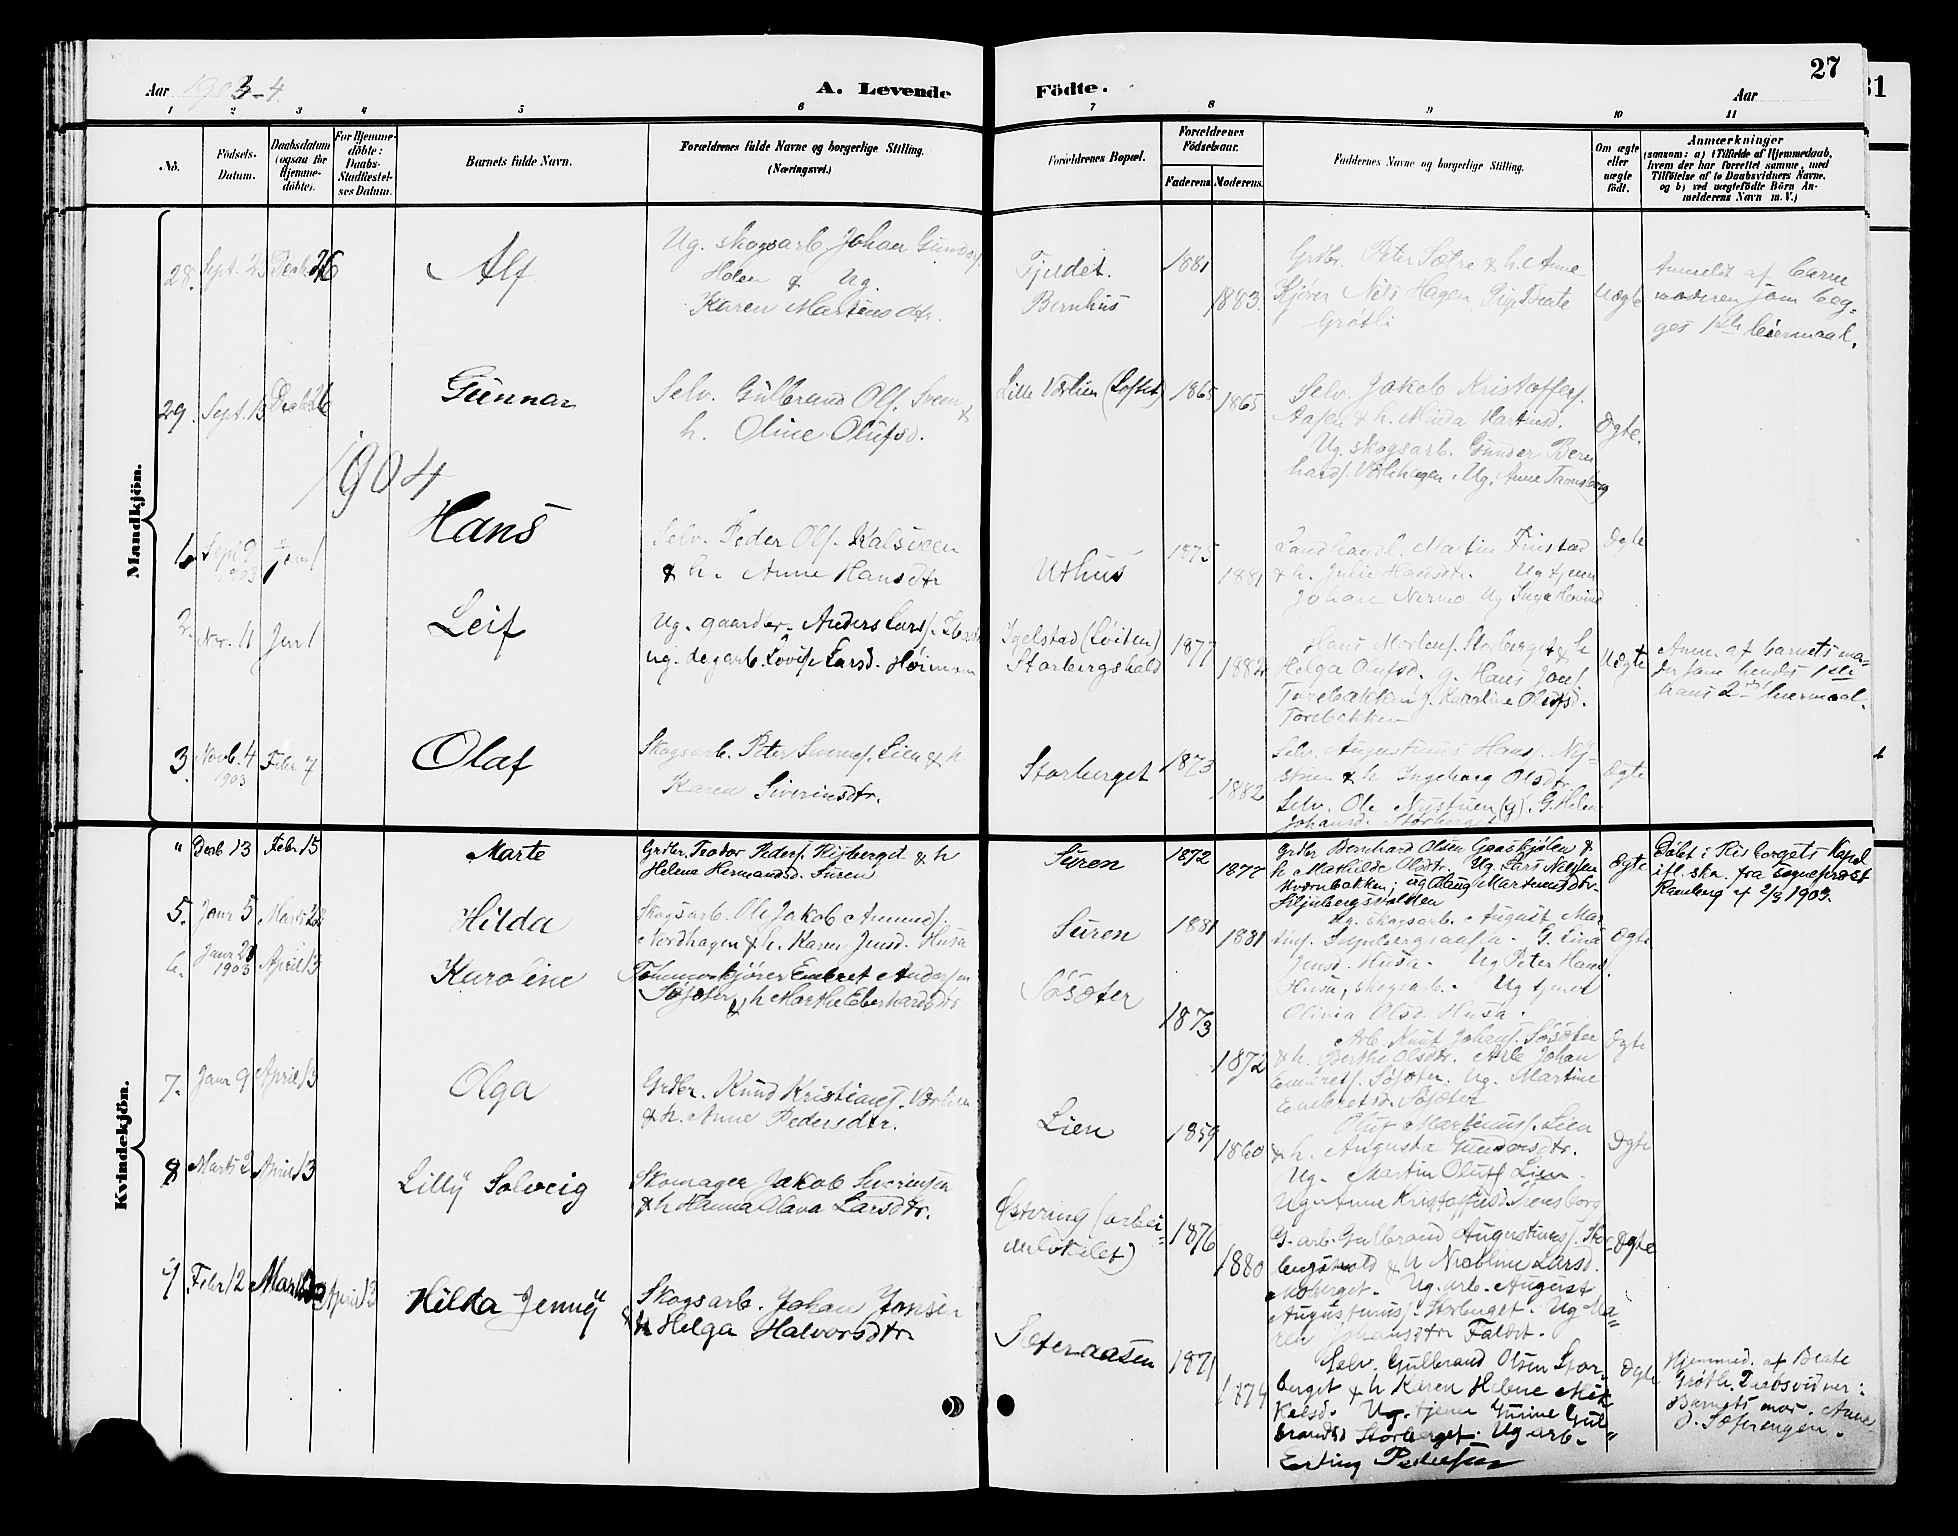 27
Aar 1903-4.
A. Levende
Födte.
Aar
1 2 3 4 5 6 7 8 9 10 11
No.
Födsels-Datum.
Daabsdatum (ogsaa for Hjemme-döbte).
For Hjemme-döbte: Daabs-Stadfæstel-ses Datum.
Barnets fulde Navn.
Forældrenes fulde Navne og borgerlige Stilling.
(Næringsvei.)
Forældrenes Bopæl.
Forældrenes Födselsaar.
Faderens. Moderens.
Faddernes Navne og borgerlige Stilling.
Om ægte eller uægte födt.
Anmærkninger
(saasom: a) i Tilfælde af Hjemmedaab,
hvem der har forrettet samme, med
Tilföielse af to Daabsvidners Navne,
og b) ved uægtefödte Börn An-
melderens Navn m. V.)
Mandkjön.
28. Sept. 25 Decbr 26
Alf
Ug. skogsarb. Johan Gunders.
Holen & Ug.
Karen Martinsdtr.
Fjeldet.
Bernhus
1881
1883.
Grdbr. Peter Sætre & h. Anne
Kjører Nils Hagen Pige Beate
Grötli
Uægte
Anmeldt af barne
moderen som beg-
ges 1ste leiermaal.
29. Sept. 15 Decbr 26
Gunnar
Selv. Gulbrand Ols. Sveen &
h. Oline Olufsd.
Lille Værlien (Loftet)
1865
1865
Selv. Jakob Kristoffers.
Aasen & h. Minda Martinsd.
Ug. skogsarb. Gunder Bern
hards. Holehagen. Ug. Anne Tronsberg
Ægte.
1904
1. Sept 9 1903 Janr 1
Hans
Selv. Peder Ols. Kalsveen
& h. Anne Hansdtr
Uthus
1875
1881
Landhandl. Martin Finstad
& h. Julie Hansdtr. Ug tjener
Johan Nermo. Ug Inga Hovind
Ægte
2. Nov. 11 Janr 1
Leif
Ug. gaardbr. Anders Lars.
ug. dagarb. Lovise Larsd. Høimoen
Igelstad (Løiten)
Storbergshold
1877
1884
Hans Mortens. Storberget & h
Helga Olufsd. g. Hans Jons
Torebakken g. Karoline Olufsd.
Torebakken
Uægte
Anm. af barnets mo-
der som hendes 1ste
hans 2det leiermaal.
3. Novb. 4 1903 Febr 7
Olaf
Skogsarb. Peter Svens. Lien & h
Karen Siverinsdtr.
Storberget
1873
1882
Selv. Augustinus Hans. Ny-
stuen & h Ingeborg Olsdtr.
Selv. Ole Nystuen (g). G. Helene
Johansd. Storberget
Ægte
Kvindekjön.
" Decb 13 Febr 15
Marte
Grdbr. Teodor Peders. Risberget & h
Helene Hermandsd. Suren
Suren
1872
1877
Grdbr Bernhard Olsen Gaaskjølen &
h Mathilde Olsdtr. Ug Lars Nielsen
Kværnbakken; ug Olaug Martinusdtr.
Siljubergsvolden
Ægte
Døbt i Risbergets Kapel
ifl. skr. fra Sogneprest
Ramberg af 2/3 1903.
5. Janr 5 Marts 22
Hilda
Skogsarb. Ole Jakob Amunds.
Nordhagen & h. Karen Jensd. Husa
Suren
1881
1881
Ug. skogsarb. August Mar
tins. Siljubergsaasen. G. Lina
Jensd. Husa. Ug Peter Hans.
Husa, skogsarb. Ug tjener
Olivia Olsd. Husa.
Ægte
6. Janr 20 1903 April 13
Karoline
Tømmerkjører Embret Andersen
Søsæter & h Marthe Eberhardsdtr
Søsæter
1873
1872
Arb. Knut Johans. Søsæter
& h. Berthe Olsdtr. Arb Johan
Embrets. Søsæter. Ug. Martine
Embretsd. Søsæter
Ægte
7. Janr 9 April 13
Olga
Grdbr. Knud Kristians. Værlien
& h. Anne Pedersdtr.
Lien
1859
1860
Oluf Martinus. Lien
& h. Augusta Gundersdtr.
Ug. Martin Olufs Lien
Ug. Anne Kristoffersd. Svensborg
Ægte
8 Marts 2 April 13
Lilly Solveig
Skomager Jakob Severinsen
& h Hanna Olava Larsdtr.
Østering (arbei-
derlokalet)
1876
1880
G. arb. Gulbrand Augustinus. Stor
bergshold & h Nicoline Larsd.
Moberget. Ug. arb. August
Augustinus. Storberget. Ug Ma-
ren Johansdtr Faldet.
Ægte
9. Febr 12 April 13
Hilda Jenny
Skogsarb. Johan Jonsen
& h Helga Halvorsdtr
Sæteraasen
1871
1874
Selv. Gulbrand Olsen Stor-
berget & h Karen Helene Mik
kelsd. Ug. tjener Gunine Gul-
brandsd Storberget. Ug arb.
Erling Pedersen
Ægte
Hjemmed. af Beate
Grøtli. Daabsvidner:
Barnets mor. Anne
O. Sæterengen.